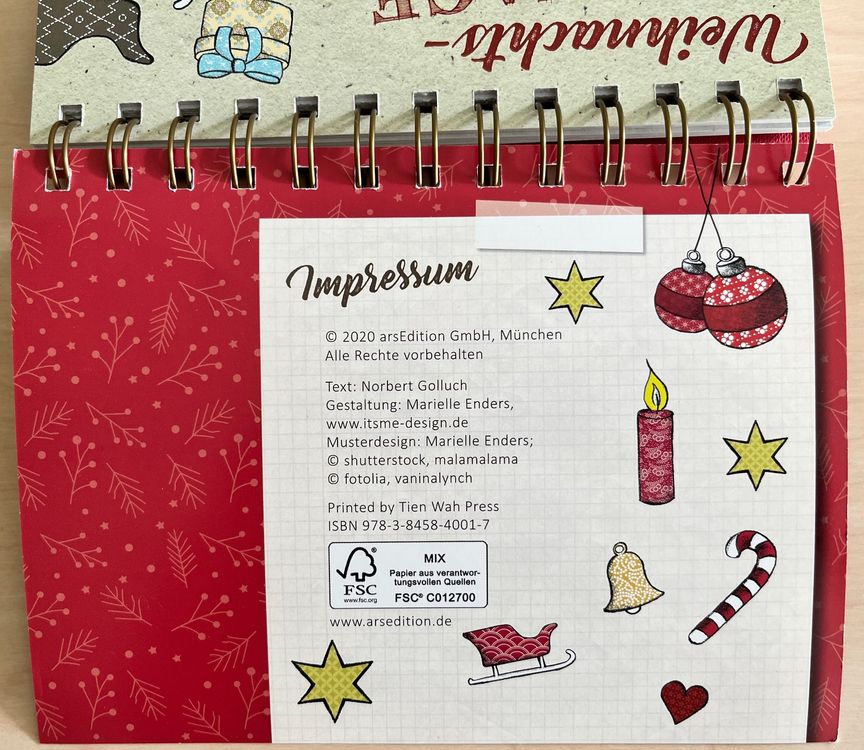 Weihnachts-
Impressum
© 2020 arsEdition GmbH, München
Alle Rechte vorbehalten
Text: Norbert Golluch
Gestaltung: Marielle Enders,
www.itsme-design.de
Musterdesign: Marielle Enders;
© shutterstock, malamalama
© fotolia, vaninalynch
Printed by Tien Wah Press
ISBN 978-3-8458-4001-7
FSC
www.fsc.org
MIX
Papier aus verantwor-
tungsvollen Quellen
FSC® C012700
www.arsedition.de